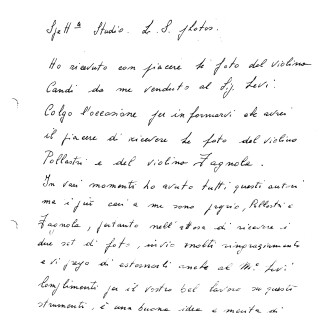 Spett.le Studio L. S. photos.
Ho ricevuto con piacere le foto del violino
Candi da me venduto al Sig. Levi.
Colgo l'occasione per informarvi che avrei
il piacere di ricevere le foto del violino
Pollastri e del violino Fagnola.
In vari momenti ho avuto tutti questi autori
ma i più cari a me sono proprio, Pollastri e
Fagnola, pertanto nell'attesa di ricevere i
due set di foto, invio molti ringraziamenti
e vi prego di estenderli anche al M° Levi
Complimenti per il vostro bel lavoro su questi
strumenti, è una buona idea e merita di